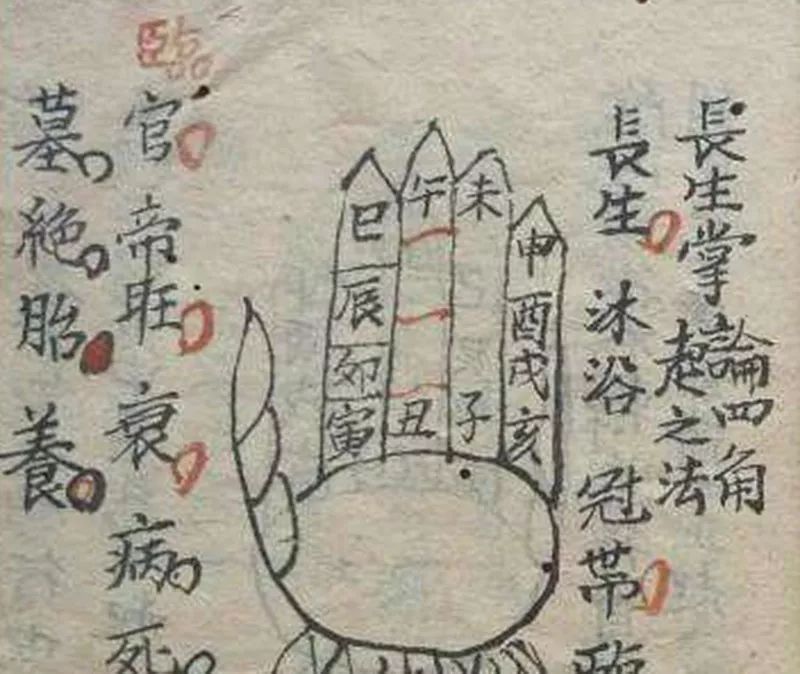 長生掌
論四角
起之法
長生 沐浴 冠帶 臨
臨
官 帝旺 衰 病 死
墓 絶 胎 養
巳 午 未 申
辰 酉
卯 戌
寅 丑 子 亥